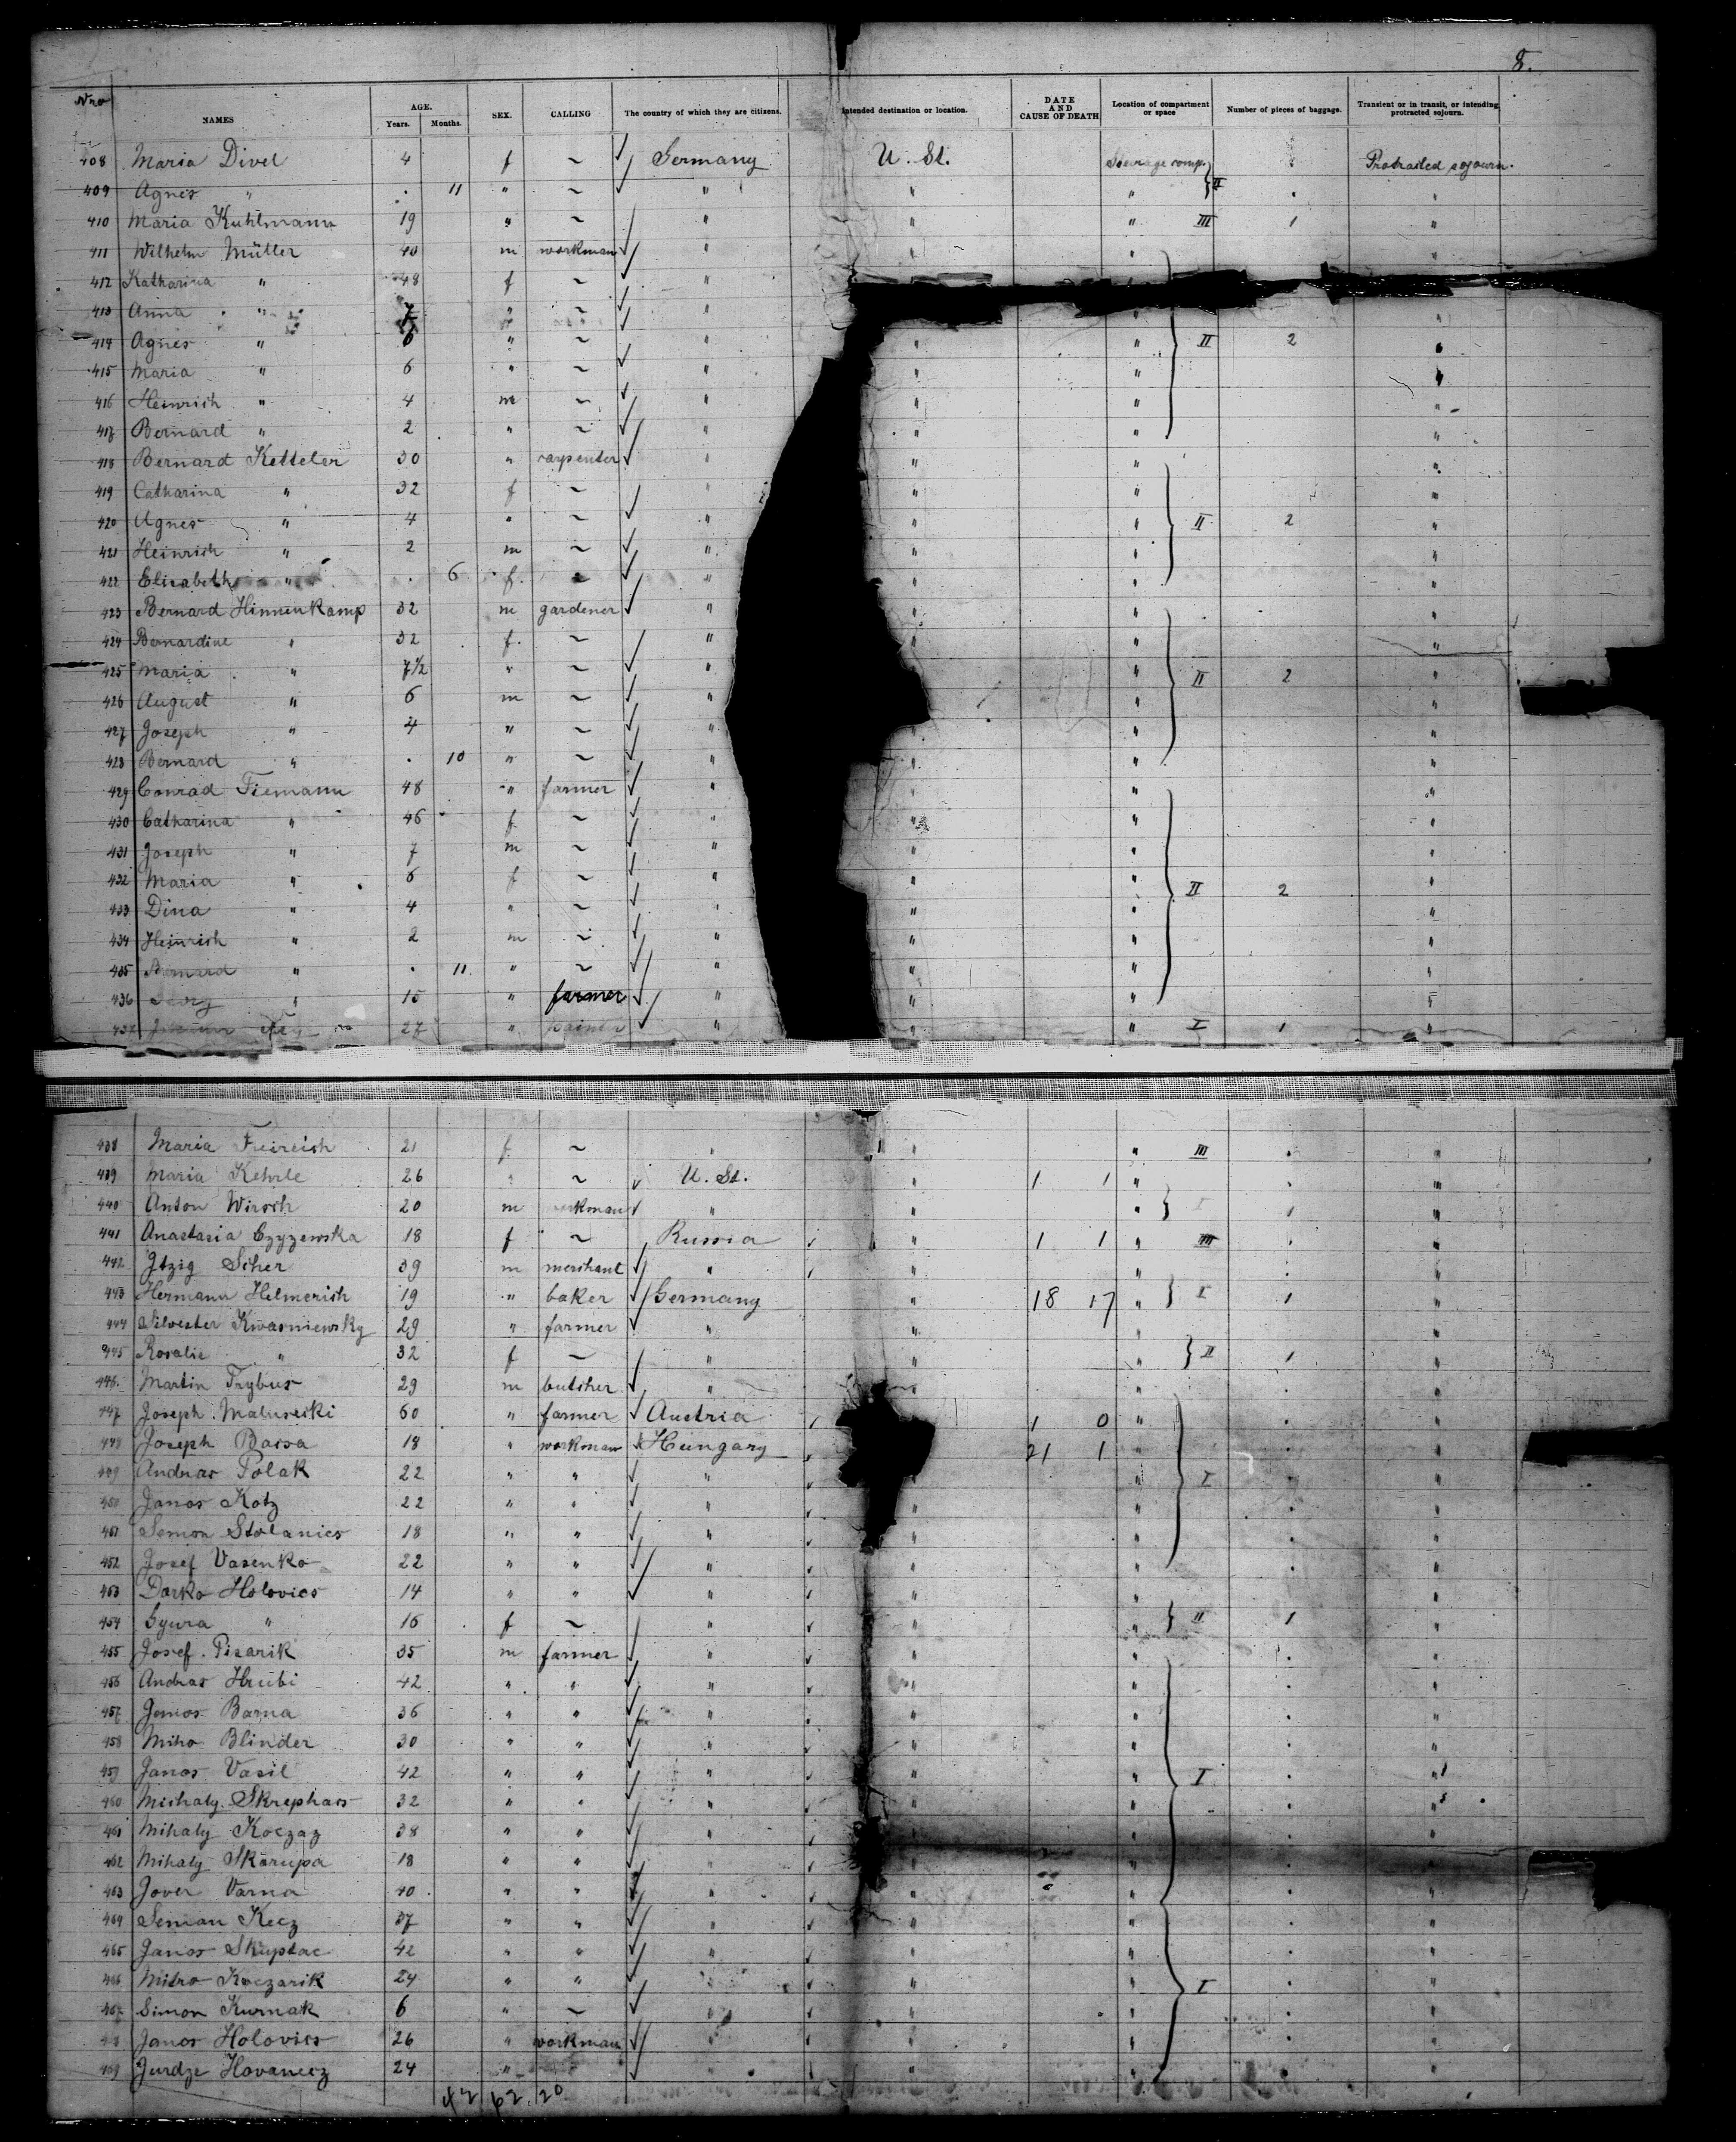 8.
Nro NAMES AGE. Years. Months. SEX. CALLING The country of which they are citizens. Intended destination or location. DATE AND CAUSE OF DEATH Location of compartment or space Number of pieces of baggage. Transient or in transit, or intending protracted sojourn.
408 Maria Divel 4 f ~ Germany U. St. Steerage comp. Protracted sojourn.
409 Agnes " . 11 " ~ " " " II . "
410 Maria Kuhlmann 19 " ~ " " " III 1 "
411 Wilhelm Müller 40 m workman " " "
412 Katharina " 48 f ~ "
413 Anna " 7 " ~ " "
414 Agnes " 6 " ~ " " " II 2 "
415 Maria " 6 " ~ " " " "
416 Heinrich " 4 m ~ " " " "
417 Bernard " 2 " ~ " " " "
418 Bernard Ketteler 30 " carpenter " " " "
419 Catharina " 32 f ~ " " " "
420 Agnes " 4 " ~ " " " II 2 "
421 Heinrich " 2 m ~ " " " "
422 Elisabeth " . 6 f ~ " " " "
423 Bernard Hinnenkamp 32 m gardener " " " "
424 Bernardine " 32 f. ~ " " " "
425 Maria " 7½ " ~ " " II 2 "
426 August " 6 m ~ " " "
427 Joseph " 4 " ~ " " " "
428 Bernard " . 10 " ~ " " "
429 Conrad Tiemann 48 " farmer " " " "
430 Catharina " 46 f ~ " " " "
431 Joseph " 7 m ~ " " " "
432 Maria " 6 f ~ " " " II 2 "
433 Dina " 4 " ~ " " " "
434 Heinrich " 2 m ~ " " " "
435 Bernard " . 11. " ~ " " " "
436 " 15 " farmer " " " "
437 27 " " " " I 1 "
438 Maria Freireich 21 f ~ " " " III . "
439 Maria Kehrle 26 " ~ U. St. " 1 1 " . "
440 Anton Wirsch 20 m workman " " " I 1 "
441 Anastasia Czyzewska 18 f ~ Russia " 1 1 " III . "
442 Itzig Scher 39 m merchant " " " . "
443 Hermann Helmerich 19 " baker Germany " 18 17 " I 1 "
444 Silvester Kwasniewsky 29 " farmer " " " "
445 Rosalie " 32 f ~ " " " II 1 "
446. Martin Trybus 29 m butcher " " " . "
447 Joseph Malusecki 60 " farmer Austria 1 0 " . "
448 Joseph Barsa 18 " workman Hungary 21 1 " . "
449 Andras Polak 22 " " " " I . "
450 Janos Kotz 22 " " " " " . "
451 Semon Stolanics 18 " " " " " . "
452 Josef Vasenko 22 " " " " " . "
453 Darko Holovics 14 " " " " " "
454 Gyura " 16 f ~ " " " II 1 "
455 Josef Pisarik 35 m farmer " " " . "
456 Andras Hrubi 42 " " " " " . "
457 Janos Barna 36 " " " " " . "
458 Miho Blinder 30 " " " " " . "
459 Janos Vasil 42 " " " " " I . "
460 Michaly Skrephars 32 " " " " " . "
461 Mihaly Koczaz 38 " " " " " . "
462 Mihaly Skarupa 18 " " " " " . "
463 Jover Varna 40 " " " " " . "
464 Seman Kecz 37 " " " " " . "
465 Janos Skuptac 42 " " " " " . "
466 Mitro Koczarik 24 " " " " " I . "
467 Simon Kurnak 6 " ~ " " " . "
Janos Holovics 26 " workman " " " . "
469 Jurdze Hovanecz 24 " " " " " . "
42 62 20